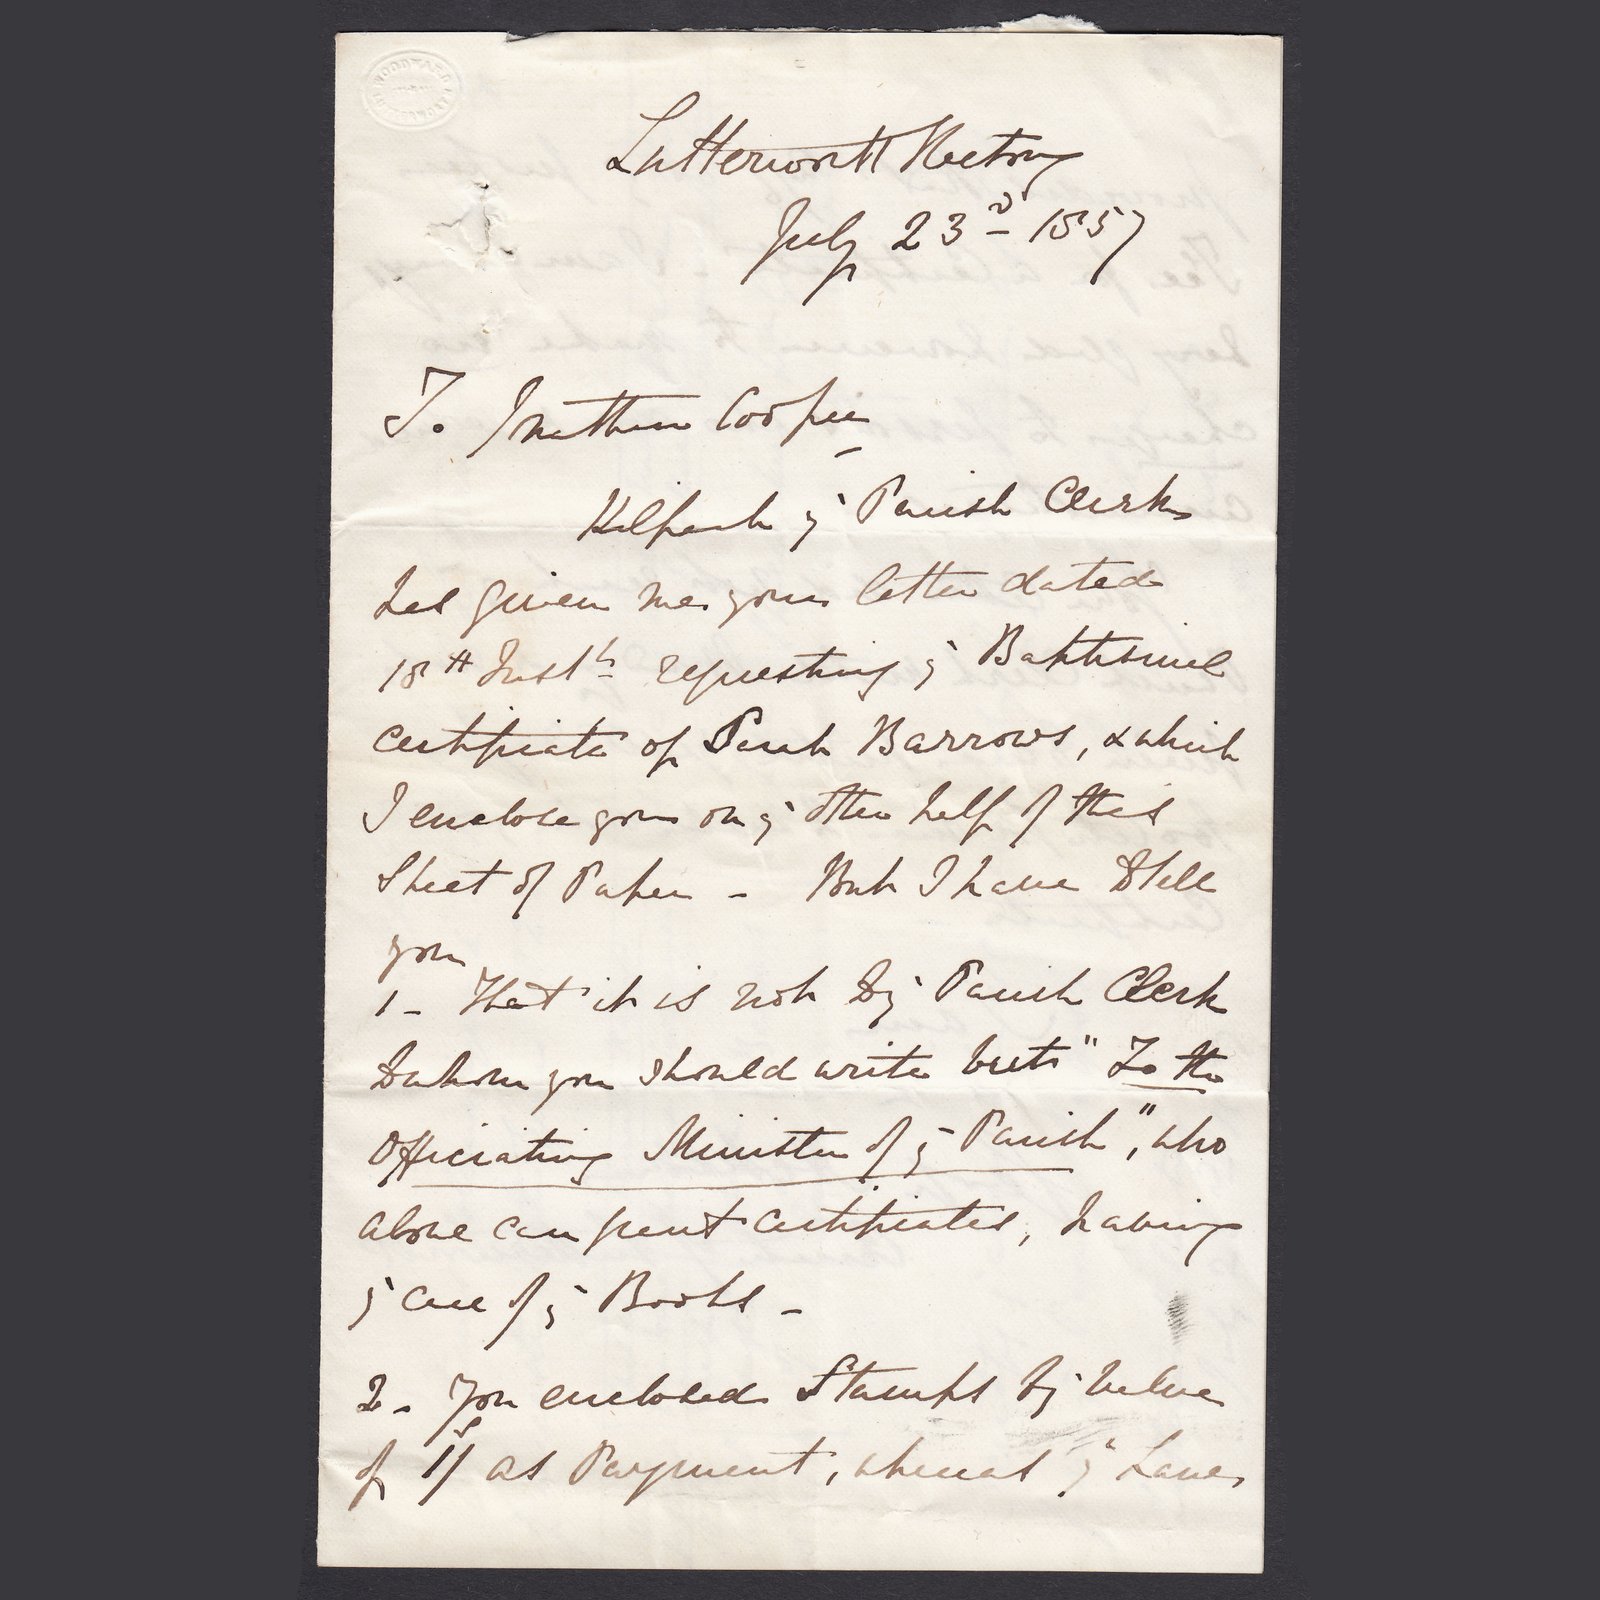 Lutterworth Rectory
July 23d 1857
To Cooper
Kilpack ye Parish Clerk
has given me your letter dated
18th Inst. requesting ye Baptismal
certificate of Sarah Barrows, & which
I enclose you on ye other half of this
Sheet of Paper – But I have to tell
you
1– That it is not to ye Parish Clerk
to whom you should write but "To the
Officiating Minister of ye Parish", who
alone can grant certificates, having
ye care of ye Books –
2– You enclosed Stamps to ye value
of 1s/ as Payment, whereas ye Law